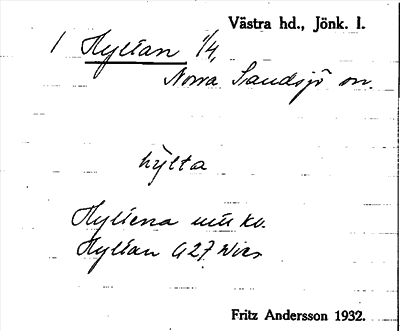 Västra hd., Jönk. l.
1 Hyltan 1/4,
Norra Sandsjö sn.
hylta
Hyltena
Hyltan G27
Fritz Andersson 1932.